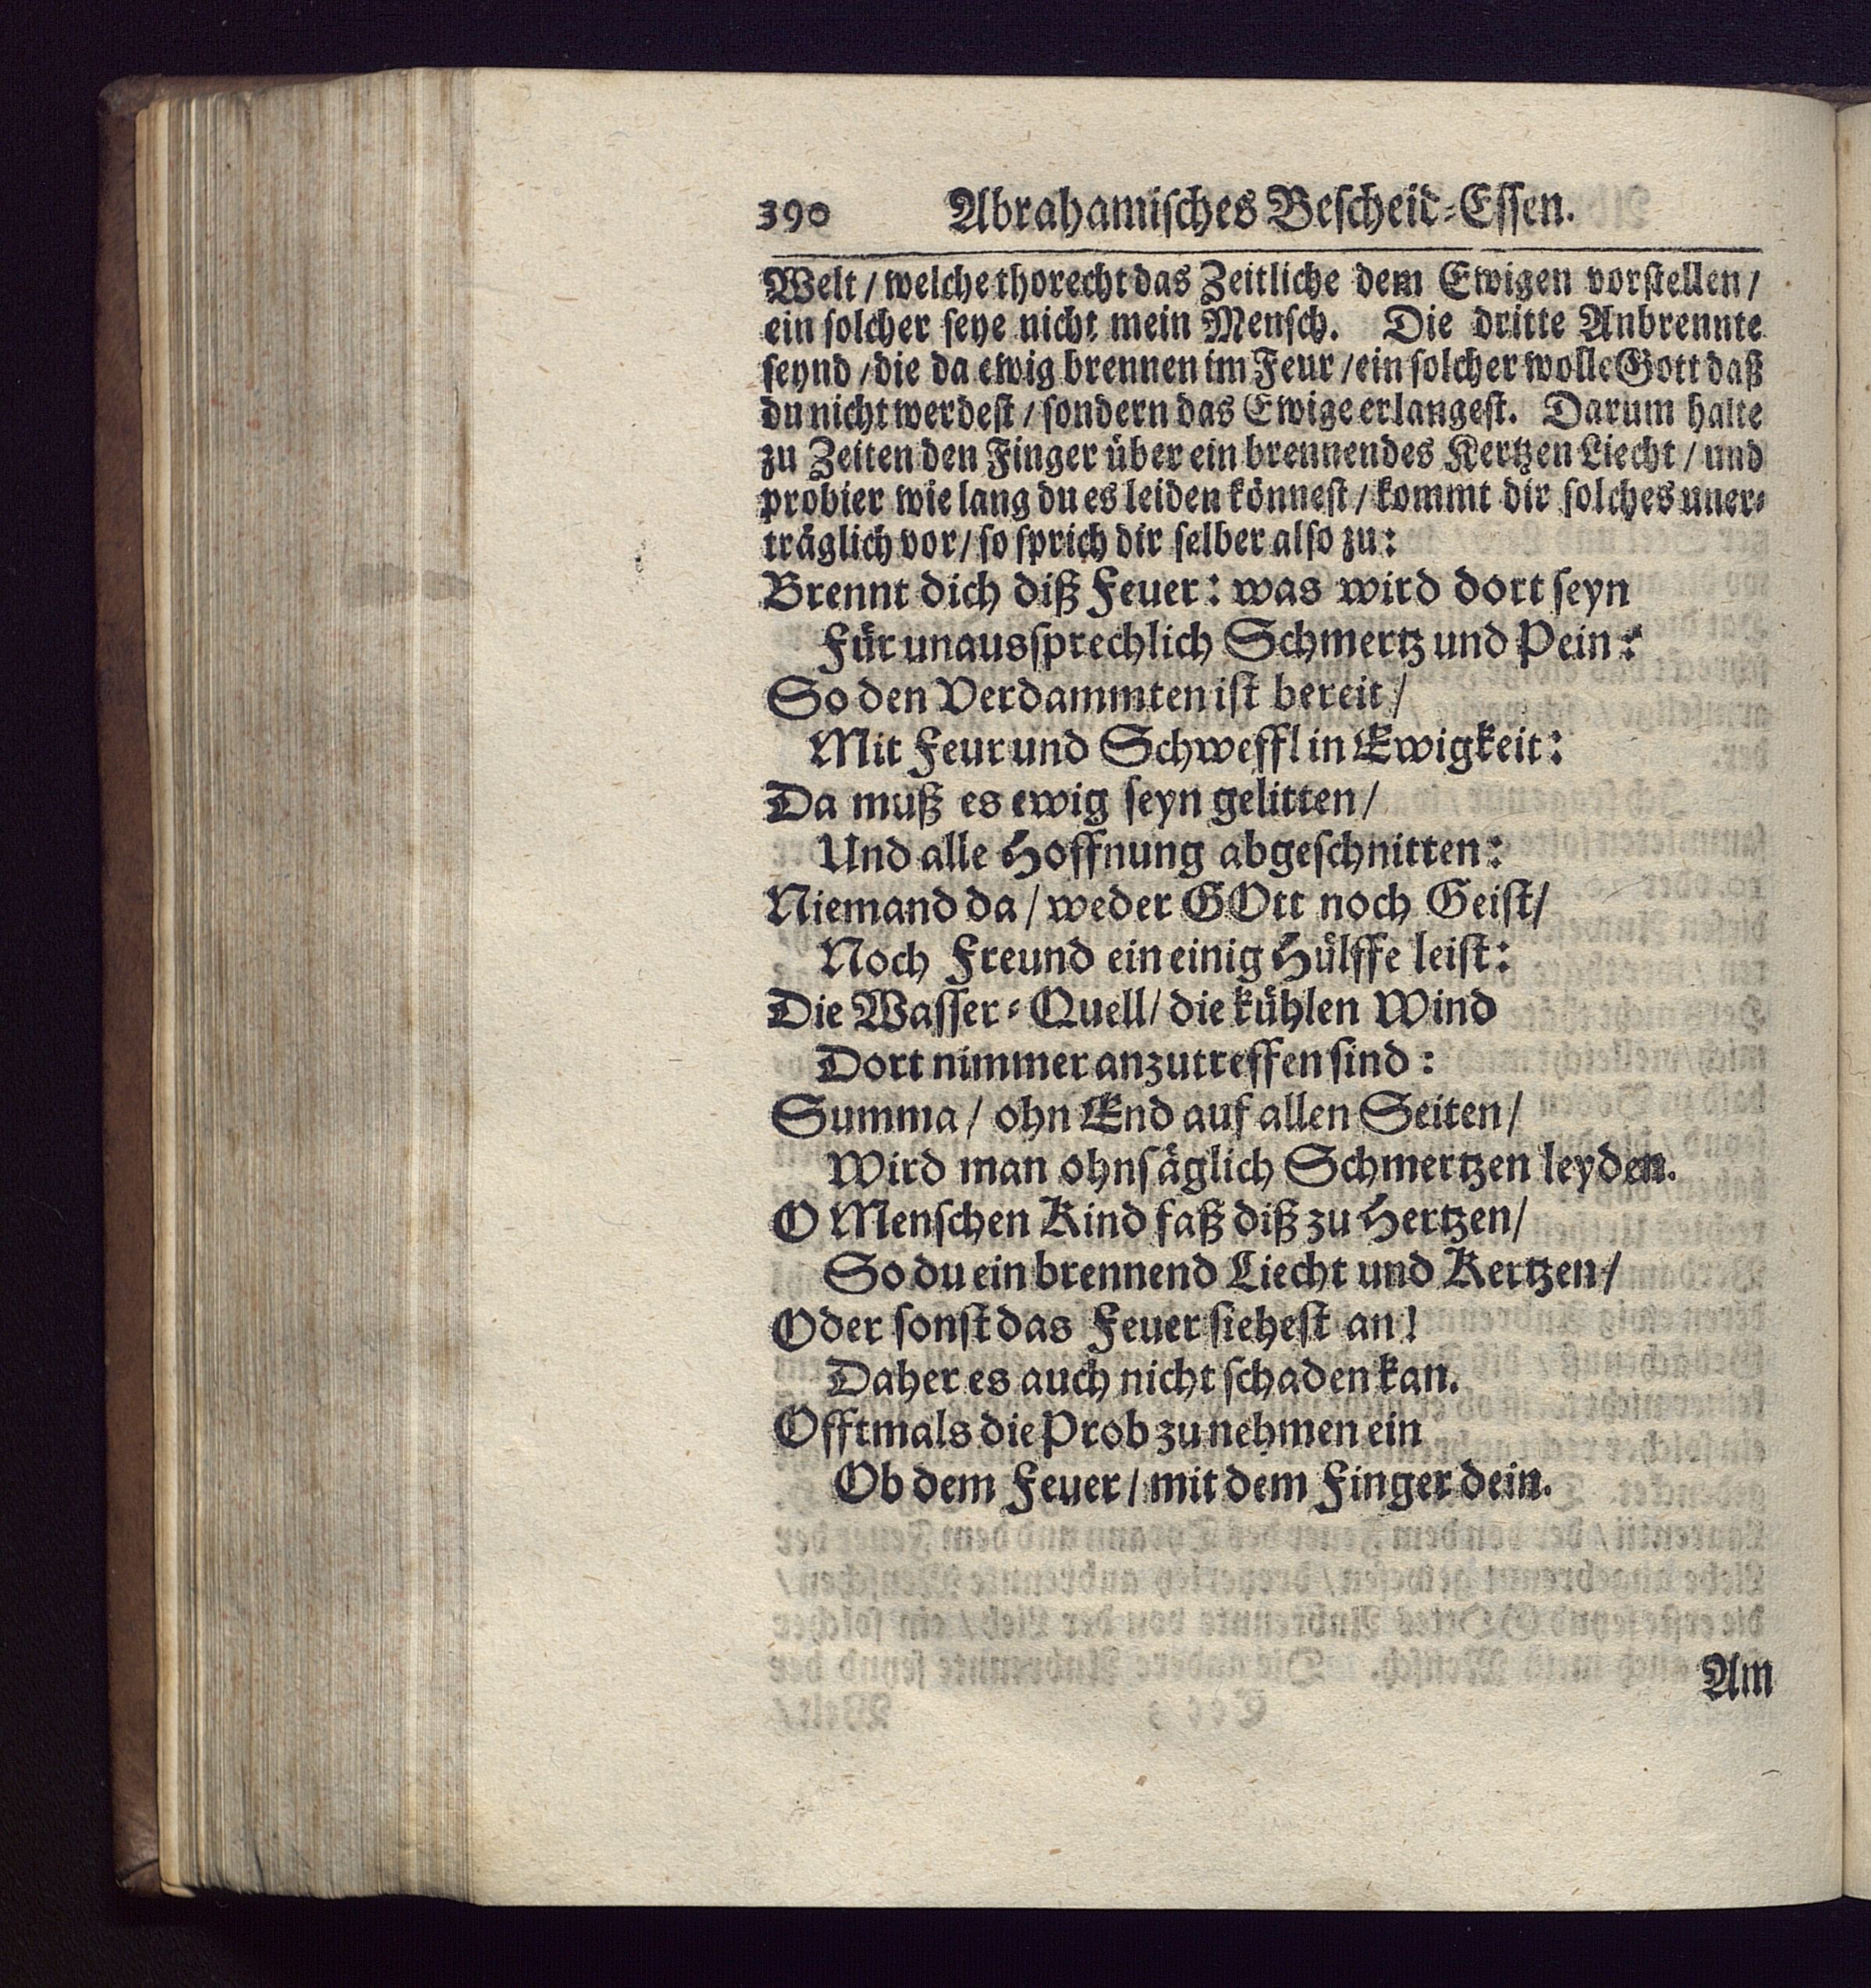 390 Abrahamisches Bescheid-Essen.
Welt / welche thorecht das Zeitliche dem Ewigen vorstellen /
ein solcher seye nicht mein Mensch. Die dritte Anbrennte
seynd / die da ewig brennen im Feur / ein solcher wolle Gott daß
du nicht werdest / sondern das Ewige erlangest. Darum halte
zu Zeiten den Finger über ein brennendes Kertzen Liecht / und
probier wie lang du es leiden könnest / kommt dir solches uner-
träglich vor / so sprich dir selber also zu:
Brennt dich diß Feuer: was wird dort seyn
Für unaussprechlich Schmertz und Pein:
So den Verdammten ist bereit /
Mit Feur und Schweffl in Ewigkeit:
Da muß es ewig seyn gelitten /
Und alle Hoffnung abgeschnitten:
Niemand da / weder GOtt noch Geist /
Noch Freund ein einig Hülffe leist:
Die Wasser-Quell / die kühlen Wind
Dort nimmer anzutreffen sind:
Summa / ohn End auf allen Seiten /
Wird man ohnsäglich Schmertzen leyden.
O Menschen Kind faß diß zu Hertzen /
So du ein brennend Liecht und Kertzen /
Oder sonst das Feuer siehest an!
Daher es auch nicht schaden kan.
Offtmals die Prob zu nehmen ein
Ob dem Feuer / mit dem Finger dein.
Am